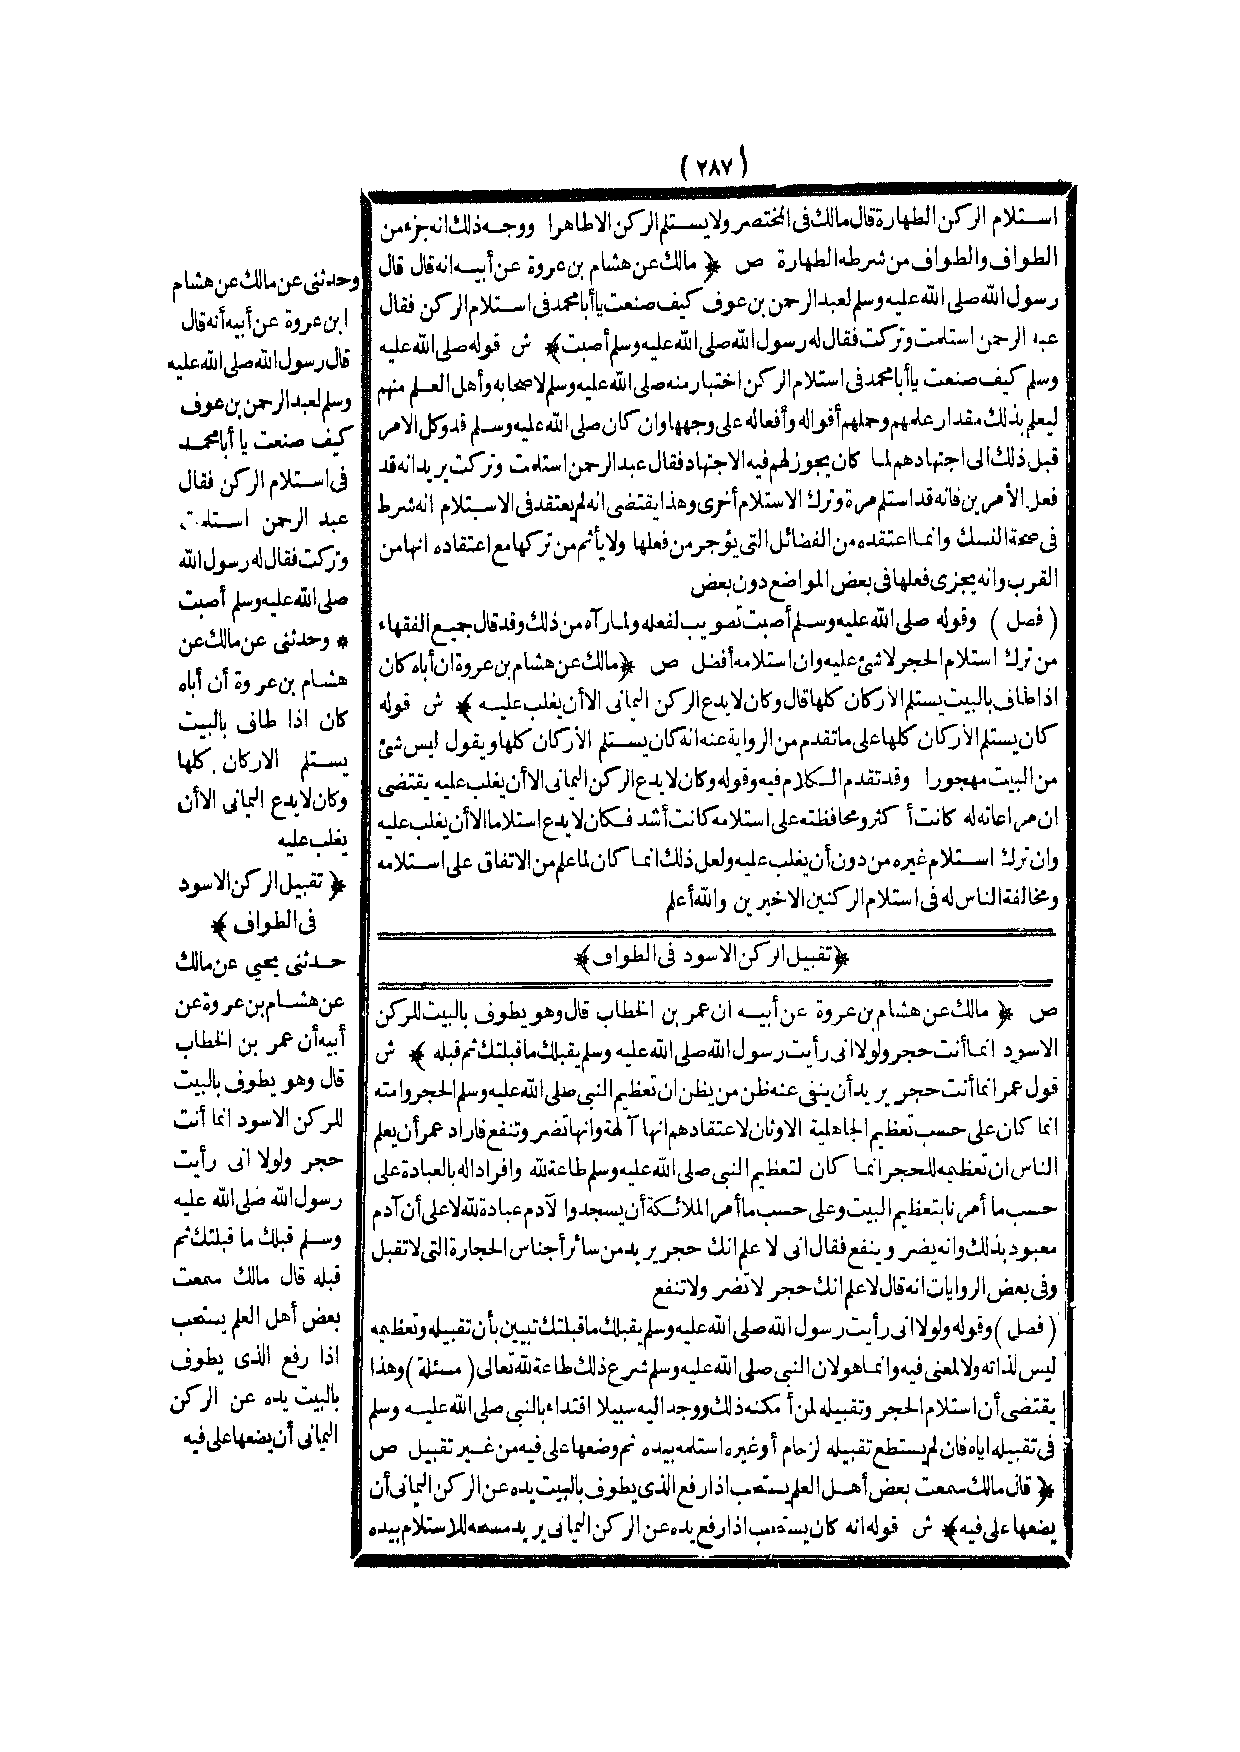 (٢٨٧)
استلام الركن الطهارة قال مالك فى المختصر ولا يستلم الركن الا طاهرا ووجه ذلك انه جزء من
الطواف والطواف من شرطه الطهارة ص ﴿ مالك عن هشام بن عروة عن أبيه انه قال قال
رسول الله صلى الله عليه وسلم لعبد الرحمن بن عوف كيف صنعت يا أبا محمد فى استلام الركن فقال
عبد الرحمن استلمت وتركت فقال له رسول الله صلى الله عليه وسلم أصبت ﴾ ش قوله صلى الله عليه
وسلم كيف صنعت يا أبا محمد فى استلام الركن اختبار منه صلى الله عليه وسلم لاصحابه وأهل العلم منهم
ليعلم بذلك مقدار علمهم وحملهم أقواله وأفعاله على وجهها وان كان صلى الله عليه وسلم قد وكل الامر
قبل ذلك الى اجتهادهم لما كان يجوز لهم فيه الاجتهاد فقال عبد الرحمن استلمت وتركت يريد انه قد
فعل الأمرين فانه قد استلم مرة وترك الاستلام أخرى وهذا يقتضى انه لم يعتقد فى الاستلام انه شرط
فى صحة النسك وانما اعتقده من الفضائل التى يؤجر من فعلها ولا يأثم من تركها مع اعتقاده انها من
القرب وانه يجزى فعلها فى بعض المواضع دون بعض
( فصل ) وقوله صلى الله عليه وسلم أصبت تصويب لفعله ولما رآه من ذلك وقد قال جميع الفقهاء
من ترك استلام الحجر لا شئ عليه وان استلامه أفضل ص ﴿ مالك عن هشام بن عروة ان أباه كان
اذا طاف بالبيت يستلم الاركان كلها قال وكان لا يدع الركن اليمانى الا أن يغلب عليه ﴾ ش قوله
كان يستلم الأركان كلها على ما تقدم من الرواية عنه انه كان يستلم الأركان كلها ويقول ليس شئ
من البيت مهجورا وقد تقدم الكلام فيه وقوله وكان لا يدع الركن اليمانى الا أن يغلب عليه يقتضى
ان مراعاته له كانت أكثر ومحافظته على استلامه كانت أشد فكان لا يدع استلاما الا أن يغلب عليه
وان ترك استلام غيره من دون أن يغلب عليه ولعل ذلك انما كان لما علم من الاتفاق على استلامه
ومخالفة الناس له فى استلام الركنين الاخيرين والله أعلم
﴿ تقبيل الركن الاسود فى الطواف ﴾
ص ﴿ مالك عن هشام بن عروة عن أبيه ان عمر بن الخطاب قال وهو يطوف بالبيت للركن
الاسود انما أنت حجر ولولا انى رأيت رسول الله صلى الله عليه وسلم يقبلك ما قبلتك ثم قبله ﴾ ش
قول عمر انما أنت حجر يريد أن ينفى عنه ظن من يظن ان تعظيم النبى صلى الله عليه وسلم الحجر وامته
انما كان على حسب تعظيم الجاهلية الاوثان لاعتقادهم انها آلهة وانها تضر وتنفع فاراد عمر أن يعلم
الناس ان تعظيمه للحجر انما كان لتعظيم النبى صلى الله عليه وسلم طاعة لله وافراد اله بالعبادة على
حسب ما أمرنا بتعظيم البيت وعلى حسب ما أمر الملائكة أن يسجدوا لآدم عبادة لله لا على أن آدم
معبود بذلك وانه يضر وينفع فقال انى لا علم انك حجر يريد من سائر أجناس الحجارة التى لا تقبل
وفى بعض الروايات انه قال لا علم انك حجر لا تضر ولا تنفع
( فصل ) وقوله ولولا انى رأيت رسول الله صلى الله عليه وسلم يقبلك ما قبلتك تبيين بأن تقبيله وتعظيمه
ليس لذاته ولا لمعنى فيه وانما هو لان النبى صلى الله عليه وسلم شرع ذلك طاعة لله تعالى ( مسئلة ) وهذا
يقتضى أن استلام الحجر وتقبيله لمن أمكنه ذلك ووجد اليه سبيلا اقتداء بالنبى صلى الله عليه وسلم
فى تقبيله اياه فان لم يستطع تقبيله لزحام أو غيره استلمه بيده ثم وضعها على فيه من غير تقبيل ص
﴿ قال مالك سمعت بعض أهل العلم يستحب اذا رفع الذى يطوف بالبيت يده عن الركن اليمانى أن
يضعها على فيه ﴾ ش قوله انه كان يستحب اذا رفع يده عن الركن اليمانى يريد مسحه للاستلام بيده
وحدثنى عن مالك عن هشام
ابن عروة عن أبيه أنه قال
قال رسول الله صلى الله عليه
وسلم لعبد الرحمن بن عوف
كيف صنعت يا أبا محمد
فى استلام الركن فقال
عبد الرحمن استلمت
وتركت فقال له رسول الله
صلى الله عليه وسلم أصبت
* وحدثنى عن مالك عن
هشام بن عروة أن أباه
كان اذا طاف بالبيت
يستلم الاركان كلها
وكان لا يدع اليمانى الا أن
يغلب عليه
﴿ تقبيل الركن الاسود
فى الطواف ﴾
حدثنى يحيى عن مالك
عن هشام بن عروة عن
أبيه أن عمر بن الخطاب
قال وهو يطوف بالبيت
للركن الاسود انما أنت
حجر ولولا انى رأيت
رسول الله صلى الله عليه
وسلم قبلك ما قبلتك ثم
قبله قال مالك سمعت
بعض أهل العلم يستحب
اذا رفع الذى يطوف
بالبيت يده عن الركن
اليمانى أن يضعها على فيه